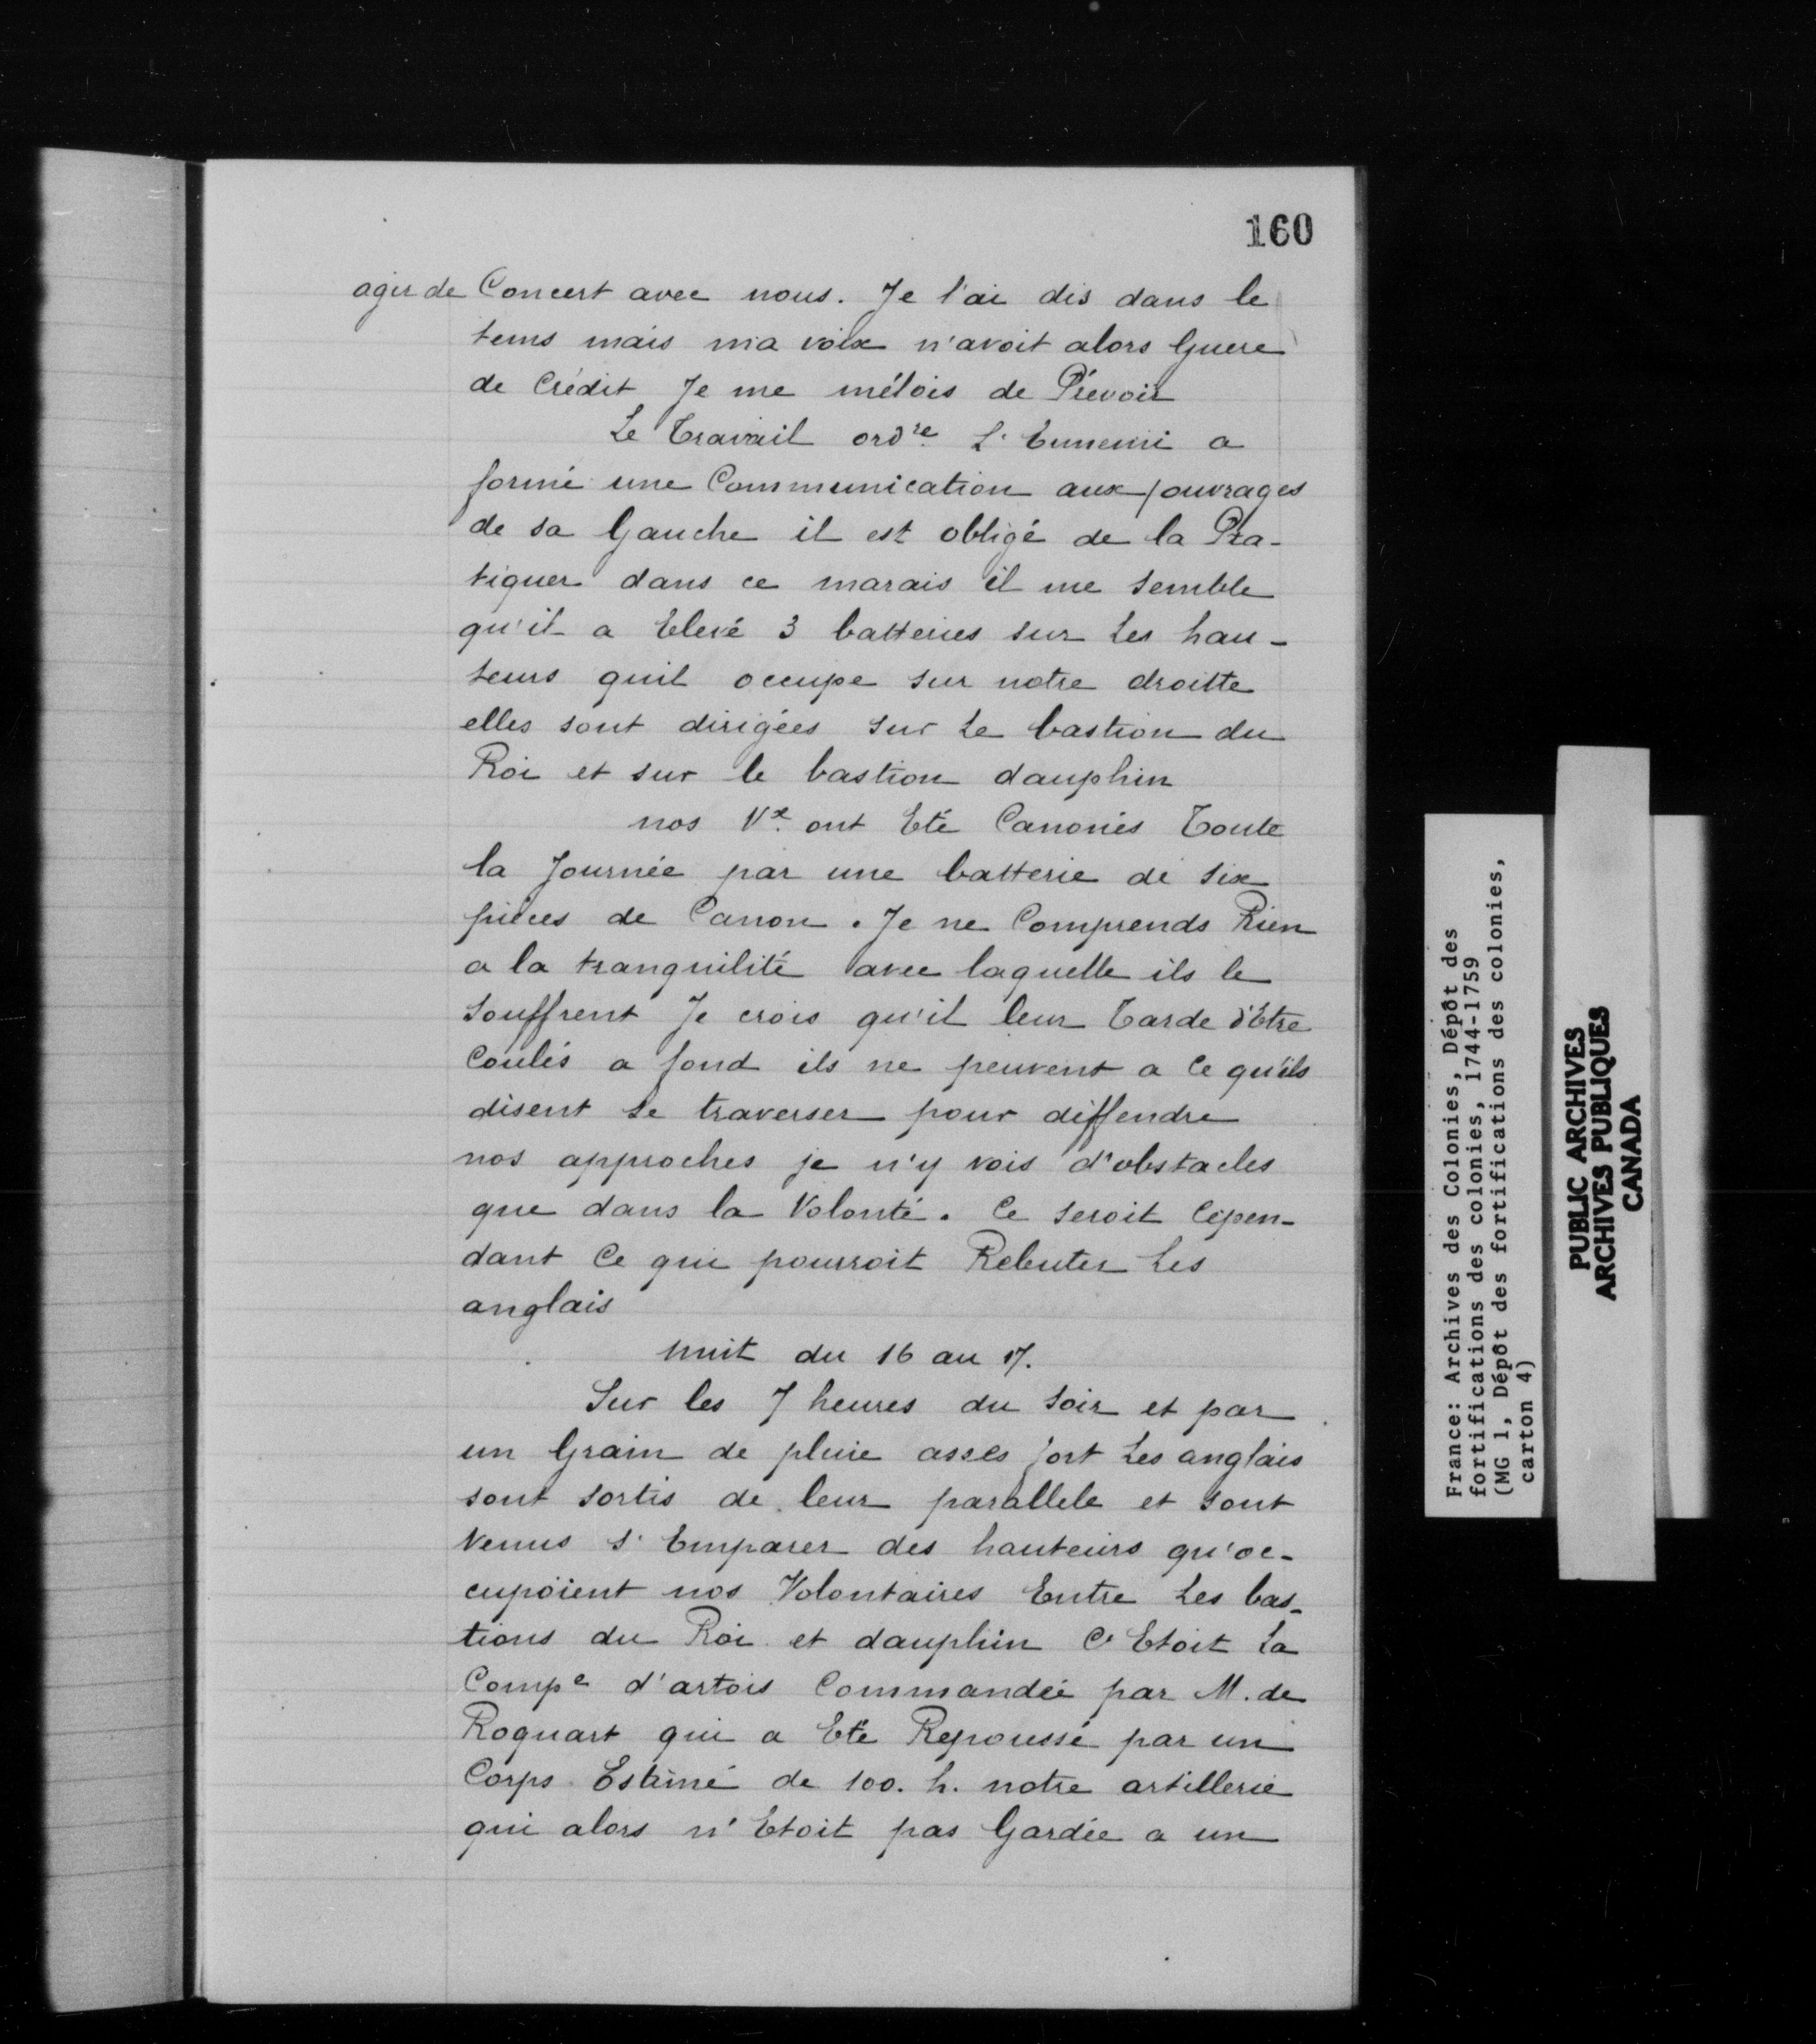 160
agir de Concert avec nous. Je l'ai dis dans le
tems mais ma voix n'avoit alors Guere
de Crédit Je me mélois de Prévoir
Le Travail ord.re L'Ennemi a
formé une Communication aux ouvrages
de sa Gauche il est obligé de la Pra-
tiquer dans ce marais il me semble
qu'il a Elevé 3 batteries sur Les hau-
teurs quil occupe sur notre droitte
elles sont dirigées sur Le bastion du
Roi et sur le bastion dauphin
nos V.x ont Eté Canonés Toute
la Journée par une batterie de six
pièces de Canon. Je ne Comprends Rien
a la tranquilité avec laquelle ils le
souffrent Je crois qu'il leur Tarde d'Etre
Coulés a fond ils ne peuvent a Ce qu'ils
disent se traverser pour diffendre
nos approches je n'y vois d'obstacles
que dans la Volonté. Ce seroit Cépen-
dant Ce qui pourroit Rebuter Les
anglais
Nuit du 16 au 17.
Sur les 7 heures du soir et par
un Grain de pluie assés fort Les anglais
sont sortis de leur parallele et sont
Venus s'Emparer des hauteurs qu'oc-
cupoient nos Volontaires Entre Les bas-
tions du Roi et dauphin C'Etoit La
Compe d'artois Commandée par M. de
Roquart qui a Eté Repoussé par un
Corps Estimé de 100. h. notre artillerie
qui alors n'Etoit pas Gardée a un
France: Archives des Colonies, Dépôt des
fortifications des colonies, 1744-1759
(MG 1, Dépôt des fortifications des colonies,
carton 4)
PUBLIC ARCHIVES
ARCHIVES PUBLIQUES
CANADA